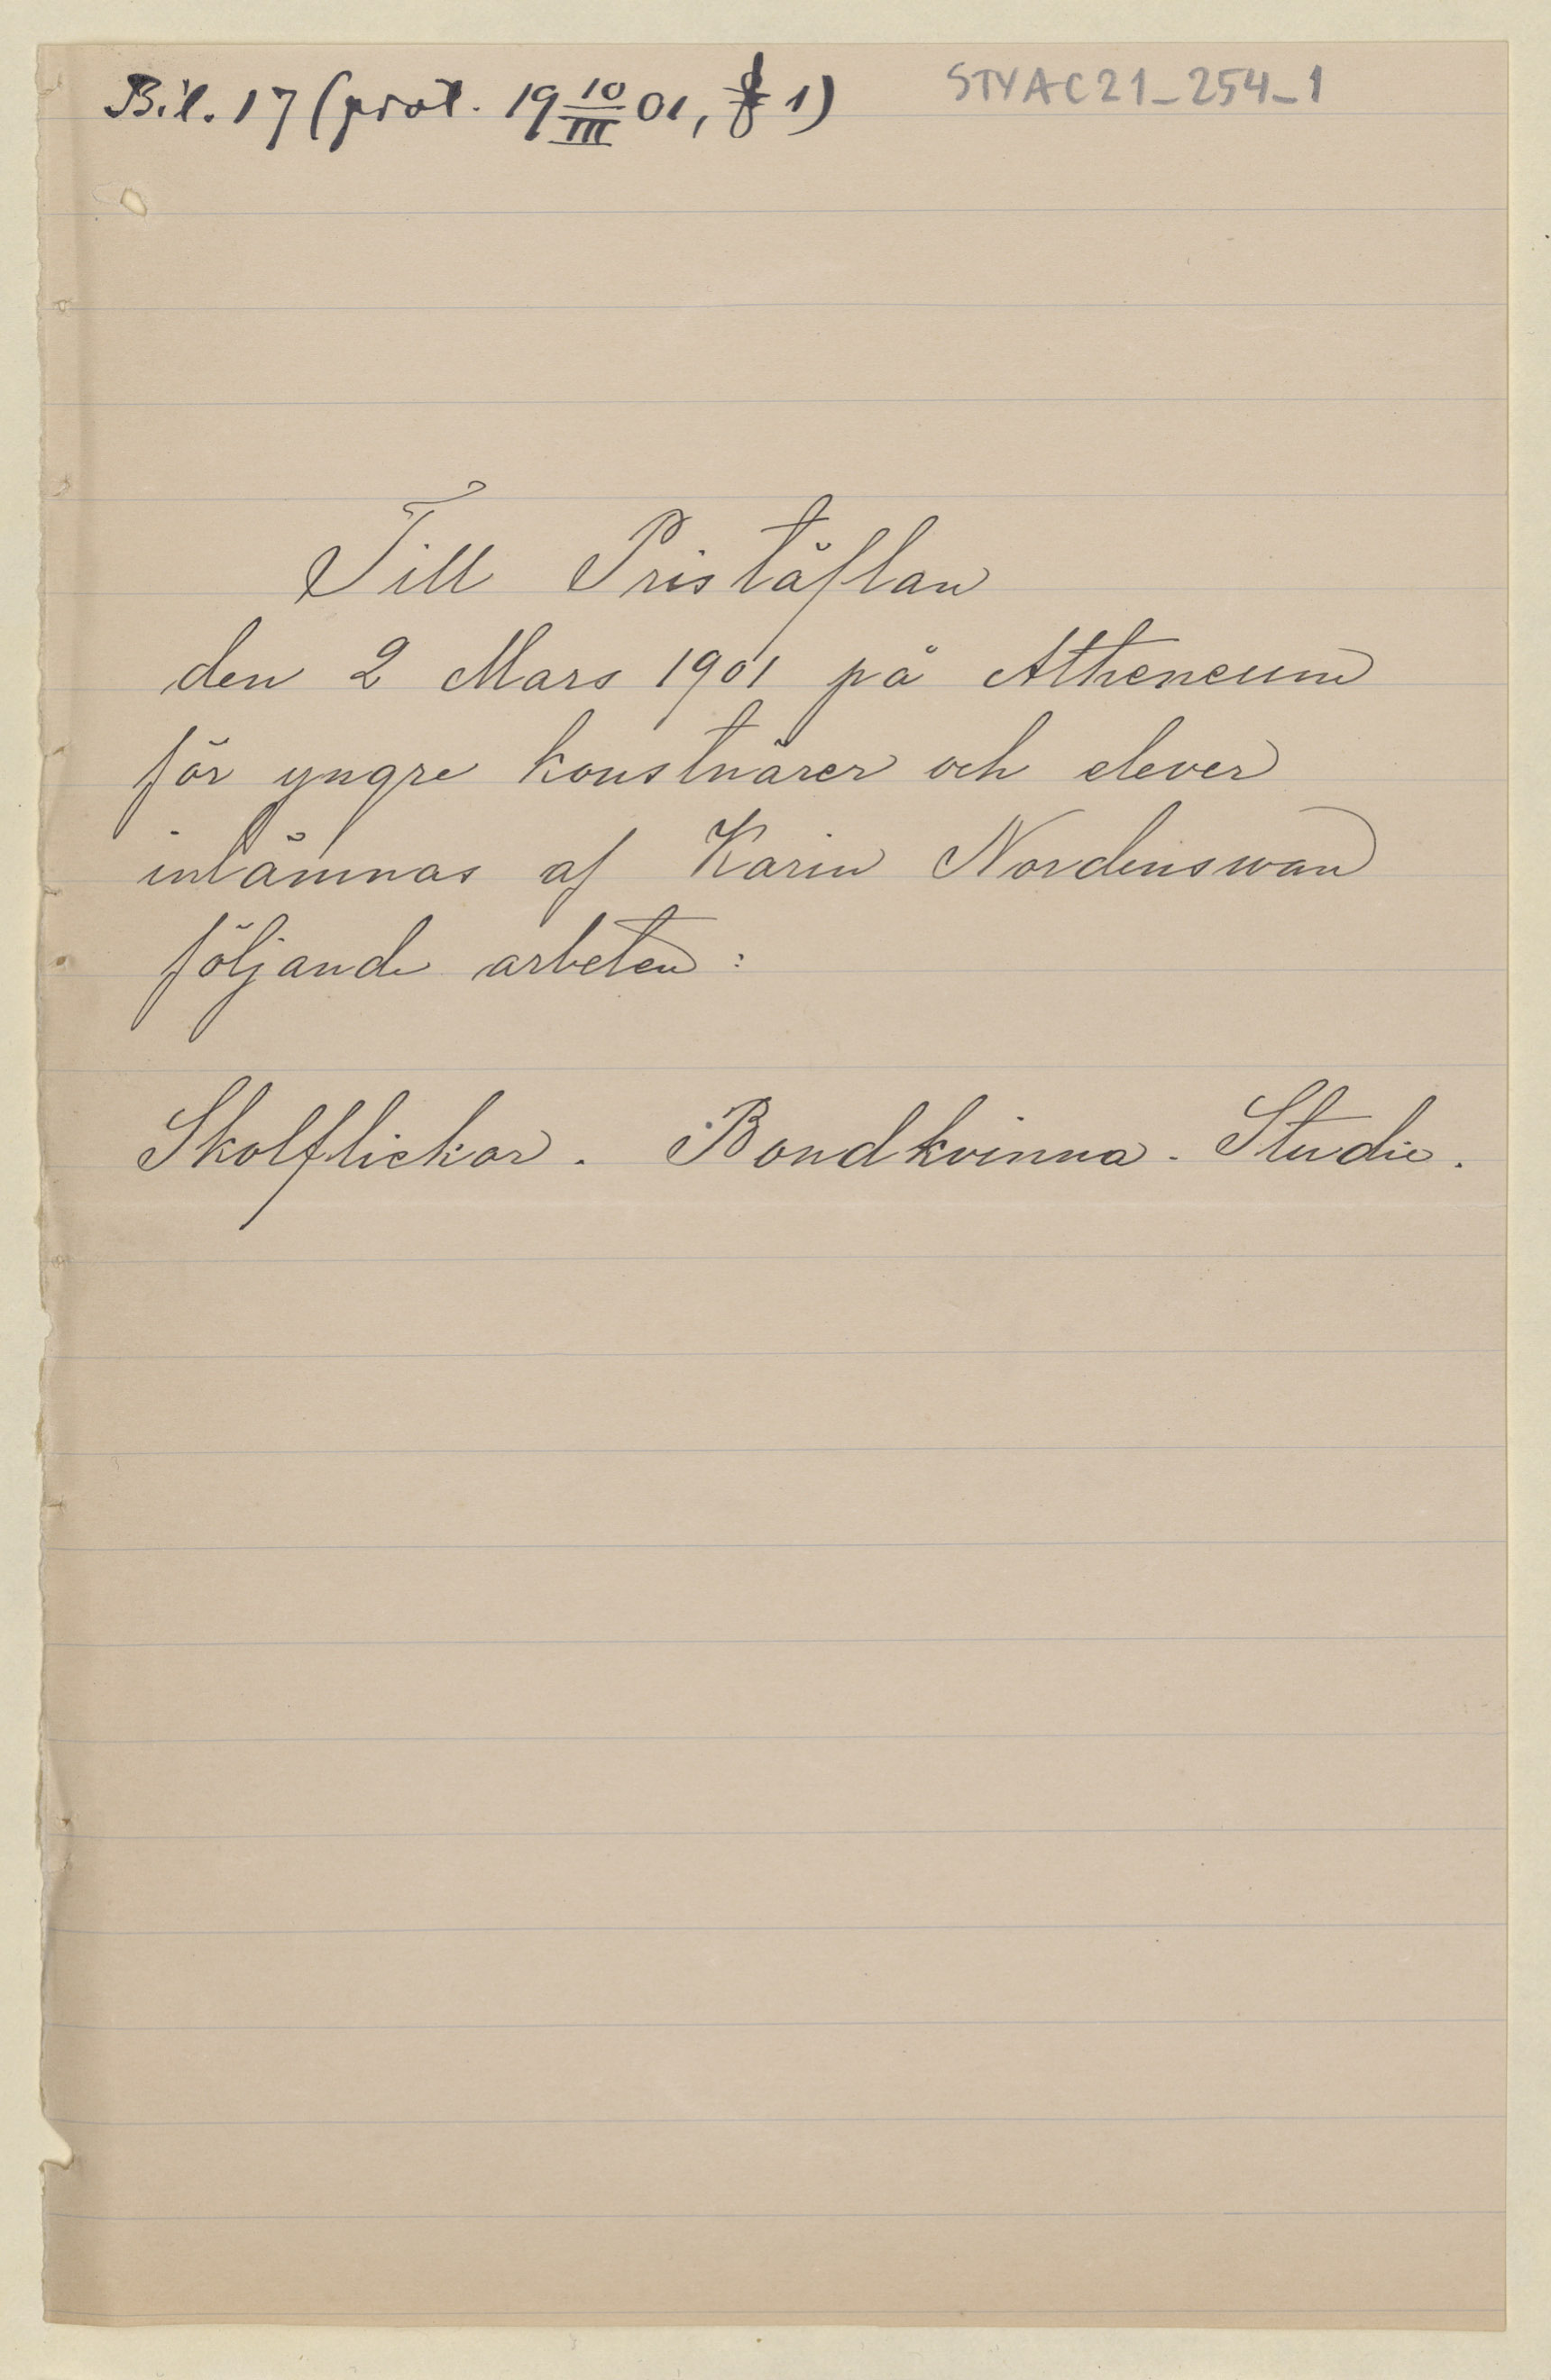 Bil. 17 (prot. 19 10/III 01, § 1)
STYAC21_254_1
Till Pristäflan
den 2 Mars 1901 på Atheneum
för yngre konstnärer och elever
inlämnas af Karin Nordenswan
följande arbeten:
Skolflickor. Bondkvinna. Studie.